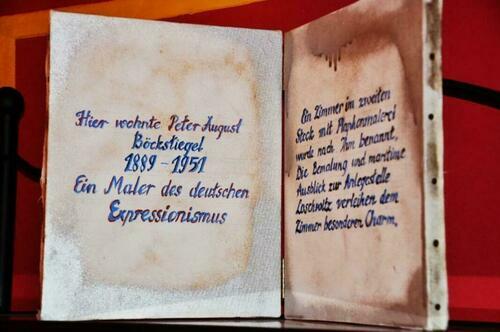 Hier wohnte Peter August
Böckstiegel
1889 - 1951
Ein Maler des deutschen
Expressionismus
Ein Zimmer im zweiten
Stock mit Plafonmalerei
wurde nach Ihm benannt.
Die Bemalung und maritime
Ausblick zur Anlegestelle
verleihen dem
Zimmer besonderen Charm.